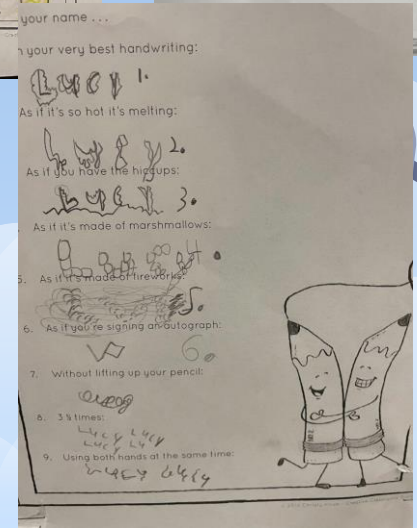 your name ...
your very best handwriting:
Lucy 1.
As if it's so hot it's melting:
Lucy 2.
As if you have the hiccups:
Lucy 3.
As if it's made of marshmallows:
Lucy
5. As if it's made of fireworks:
5.
6. As if you're signing an autograph:
6.
7. Without lifting up your pencil:
8. 3 ½ times:
Lucy Lucy
Lucy Lu
9. Using both hands at the same time:
Lucy Lucy